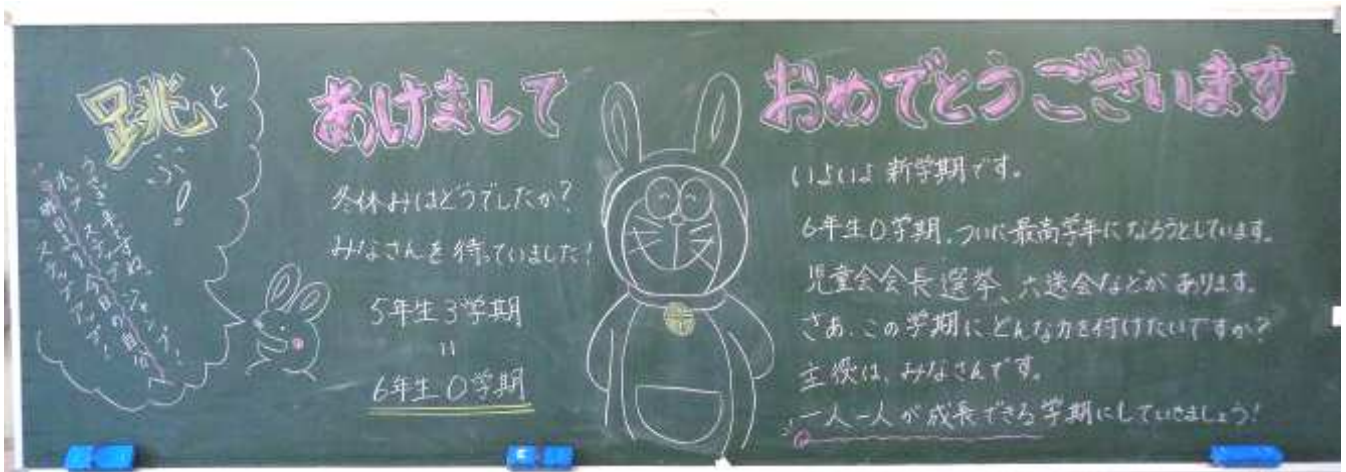 跳と
ぶ!
うさぎ年ですね。
ホップ ステップ ジャンプ!
昨日より今日の自分
ステップアップ!
あけまして
冬休みはどうでしたか?
みなさんを待っていました!
5年生3学期
=
6年生0学期
おめでとうございます
いよいよ新学期です。
6年生0学期、ついに最高学年になろうとしています。
児童会会長選挙、六送会などがあります。
さあ、この学期にどんな力を付けたいですか?
主役は、みなさんです。
一人一人が成長できる学期にしていきましょう!